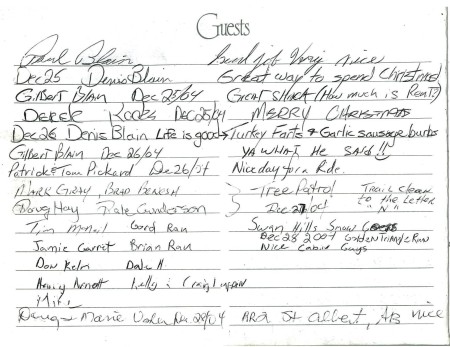 Guests
Paul Blain Good job Very nice
Dec 25 Denis Blain Great way to spend Christmas
Gilbert Blain Dec 25/04 GREAT SHACK (How much is Rent?)
Derek Dec 25/04 MERRY CHRISTMAS
Dec 26 Denis Blain Life is good → Turkey Farts & Garlic sausage burbs
Gilbert Blain Dec 26/04 YA WHAT He SAID!!
Patrick & Tom Pickard Dec 26/04 Nice day for a Ride.
MARK GIRAY BRAD BENESH Tree Patrol Trail Closer
Doug Hay Dale Gunderson Dec 27 04 to the Letter
"N"
Tim Gord Ran Swan Hills Snow
Dec 28 2004 Golden Triangle Run
Jamie Garret Brian Ran Nice Cabin Guys
Don Kelm Dale H
Kelly & Craig
Mike
Doug & Marie Dec 28/04 St Albert, AB nice